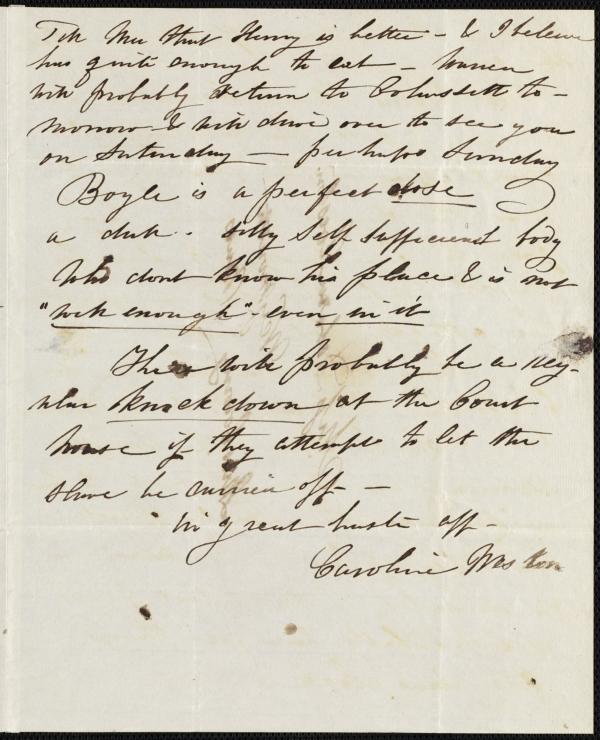 Tell Mrs that Henry is better – & I believe
has quite enough to eat – Warren
will probably return to Cohassett to-
morrow & will drive over to see you
on Saturday – perhaps Sunday
Boyle is a perfect dose
a silly self sufficient body
who dont know his place & is not
"well enough" – even in it
There will probably be a reg-
ular knock down at the Court
house if they attempt to let the
slave be carried off –
in great haste aff –
Caroline Weston